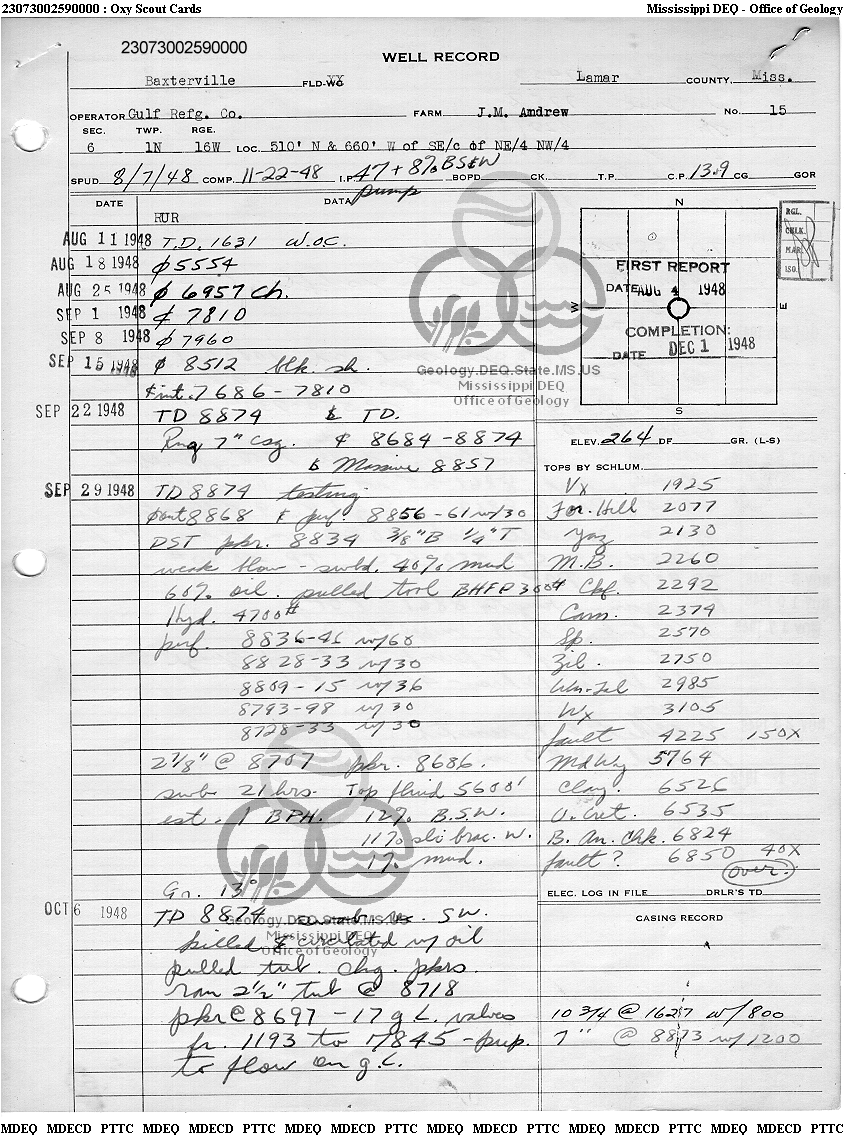 23073002590000 : Oxy Scout Cards
Mississippi DEQ - Office of Geology
23073002590000
WELL RECORD
Baxterville FLD-WC XX Lamar COUNTY, Miss.
OPERATOR Gulf Refg. Co. FARM J.M. Amdrew No. 15
SEC. TWP. RGE.
6 1N 16W LOC. 510' N & 660' W of SE/c of NE/4 NW/4
SPUD 8/7/48 COMP. 11-22-48 I.P. 47 + 8% BS&W BOPD CK. T.P. C.P. 13.9 CG GOR
pump
DATE DATA
RUR
AUG 11 1948 T.D. 1631 W.O.C.
AUG 18 1948 ¢ 5554
AUG 25 1948 ¢ 6957 Ch.
SEP 1 1948 ¢ 7810
SEP 8 1948 ¢ 7960
SEP 15 1948 ¢ 8512 blk. sh.
¢ int. 7686 - 7810
SEP 22 1948 TD 8874 & TD.
Rng 7" csg. ¢ 8684-8874
& Massive 8857
SEP 29 1948 TD 8874 testing
8868 & perf. 8856-61 w/30
DST pkr. 8834 3/8" B 1/4" T
weak blow - swbd. 40% mud
60% oil. pulled tool BHFP 300#
Hyd. 4700#
perf. 8836-41 w/60
8828-33 w/30
8809-15 w/36
8793-98 w/30
8728-33 w/30
2 7/8" @ 8707 pkr. 8686.
swb. 21 hrs. Top fluid 5600'
est. 1 BPH. 12% B.S.W.
11% sli brac. w.
1% mud.
Gr. 13°
OCT 6 1948 TD 8874 SW.
killed & circulated w/ oil
pulled tub. chg. pkrs.
ran 2 1/2" tub @ 8718
pkr @ 8697 - 17 g.L. valves
fr. 1193 to 7845 - prep.
to flow on g.L.
N
W
E
S
FIRST REPORT
DATE AUG 4 1948
COMPLETION:
DATE DEC 1 1948
RGL.
CHLK.
MAR.
ISO.
ELEV. 264 DF GR. (L-S)
TOPS BY SCHLUM.
Vx 1925
For. Hill 2077
Yaz 2130
M.B. 2260
Ckf. 2292
Cam. 2374
Sp. 2570
Zil. 2750
Wm-Tal 2985
Wx 3105
fault 4225 150X
MdWy 5764
Clay. 6526
U. Cret. 6535
B. An. Chk. 6824
fault? 6850 40X
(over.)
ELEC. LOG IN FILE DRLR'S TD
CASING RECORD
10 3/4 @ 1627 w/800
7" @ 8873 w/1200
Geology.DEQ.State.MS.US
Mississippi DEQ
Office of Geology
Geology.DEQ.State.MS.US
Mississippi DEQ
Office of Geology
MDEQ MDECD PTTC MDEQ MDECD PTTC MDEQ MDECD PTTC MDEQ MDECD PTTC MDEQ MDECD PTTC MDEQ MDECD PTTC